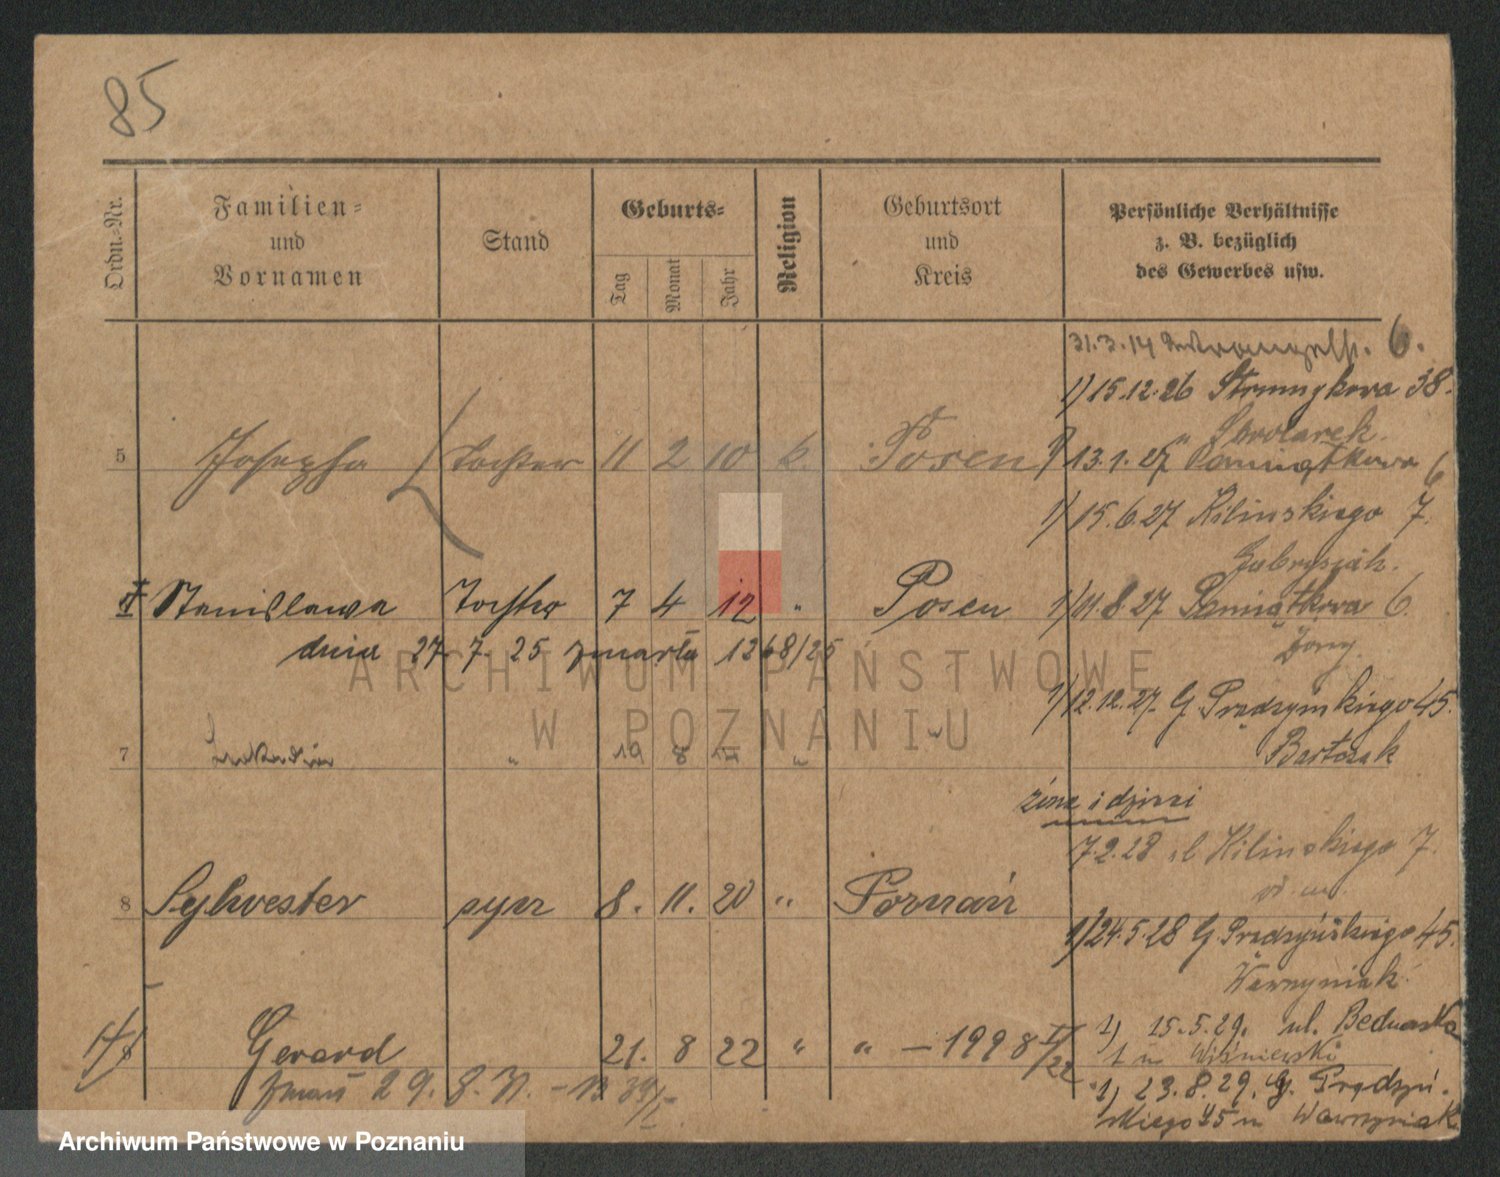 85
Ordn.-Nr.
Familien-
und
Vornamen
Stand
Geburts-
Tag
Monat
Jahr
Religion
Geburtsort
und
Kreis
Persönliche Verhältnisse
z. B. bezüglich
des Gewerbes usw.
31.3.14 6.
1) 15.12.26 38.
5 Josepha Tochter 11 2 10 k. Posen
1) 13.1.27 Pamiątkowa 6
1) 15.6.27 Kilinskiego 7.
Gabrysiak.
Stanislawa Tochter 7 4 12 " Posen
1) 11.8.27 Pamiątkowa 6.
dnia 27. 7. 25 zmarła 1268/25
1) 12.12.27. G. Prądzymkiego 45.
Bartczak
7 " 19 8 " "
żona i dzieci
7.2.28 ul Kilinskiego 7.
8 Sylwester syn 8. 11. 20 " Poznań
1) 24.5.28 G. Prądzyńskiego 45.
Wawrzyniak
Gerard 21. 8 22 " " — 1998 II/22
1) 15.5.29. ul. Bednarska
1 u Wiśniewski
zmarł 29. 8. 31.
1) 23.8.29. G. Prądzyń-
skiego 45 u Wawrzyniak
ARCHIWUM PAŃSTWOWE
W POZNANIU
Archiwum Państwowe w Poznaniu